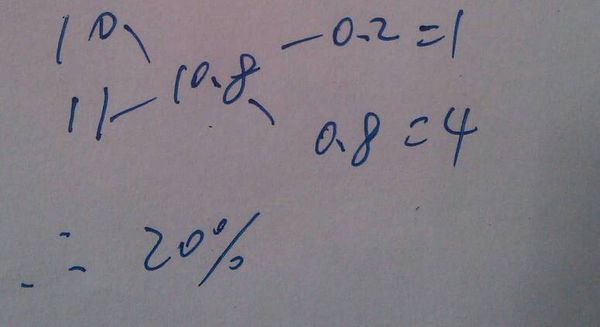 10
10.8 0.2=1
11
0.8=4
∴ 20%